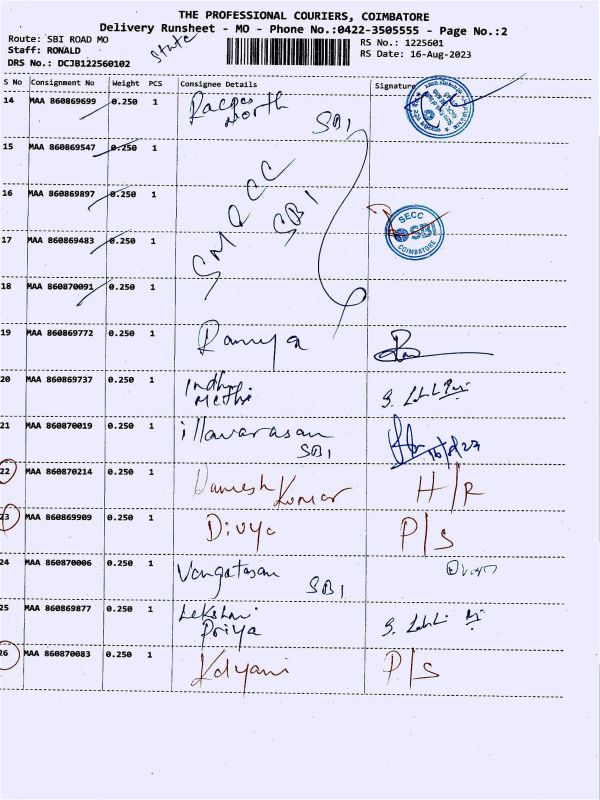 THE PROFESSIONAL COURIERS, COIMBATORE
Delivery Runsheet - MO - Phone No.:0422-3505555 - Page No.:2
Route: SBI ROAD MO
RS No.: 1225601
Staff: RONALD
State
RS Date: 16-Aug-2023
DRS No.: DCJB122560102
S No Consignment No Weight PCS Consignee Details Signature
14 MAA 860869699 0.250 1
North
SBI
15 MAA 860869547 0.250 1
16 MAA 860869897 0.250 1
SBI
SECC
SBI
COIMBATORE
17 MAA 860869483 0.250 1
18 MAA 860870091 0.250 1
19 MAA 860869772 0.250 1 Ramya
20 MAA 860869737 0.250 1 Indhu
21 MAA 860870019 0.250 1 illavarasan
SBI 16/8/23
22 MAA 860870214 0.250 1 Kumar H/R
23 MAA 860869909 0.250 1 Divya P/S
24 MAA 860870006 0.250 1 Vangatasan
SBI
25 MAA 860869877 0.250 1 Lekshmi
Priya
26 MAA 860870083 0.250 1 Kalyani P/S